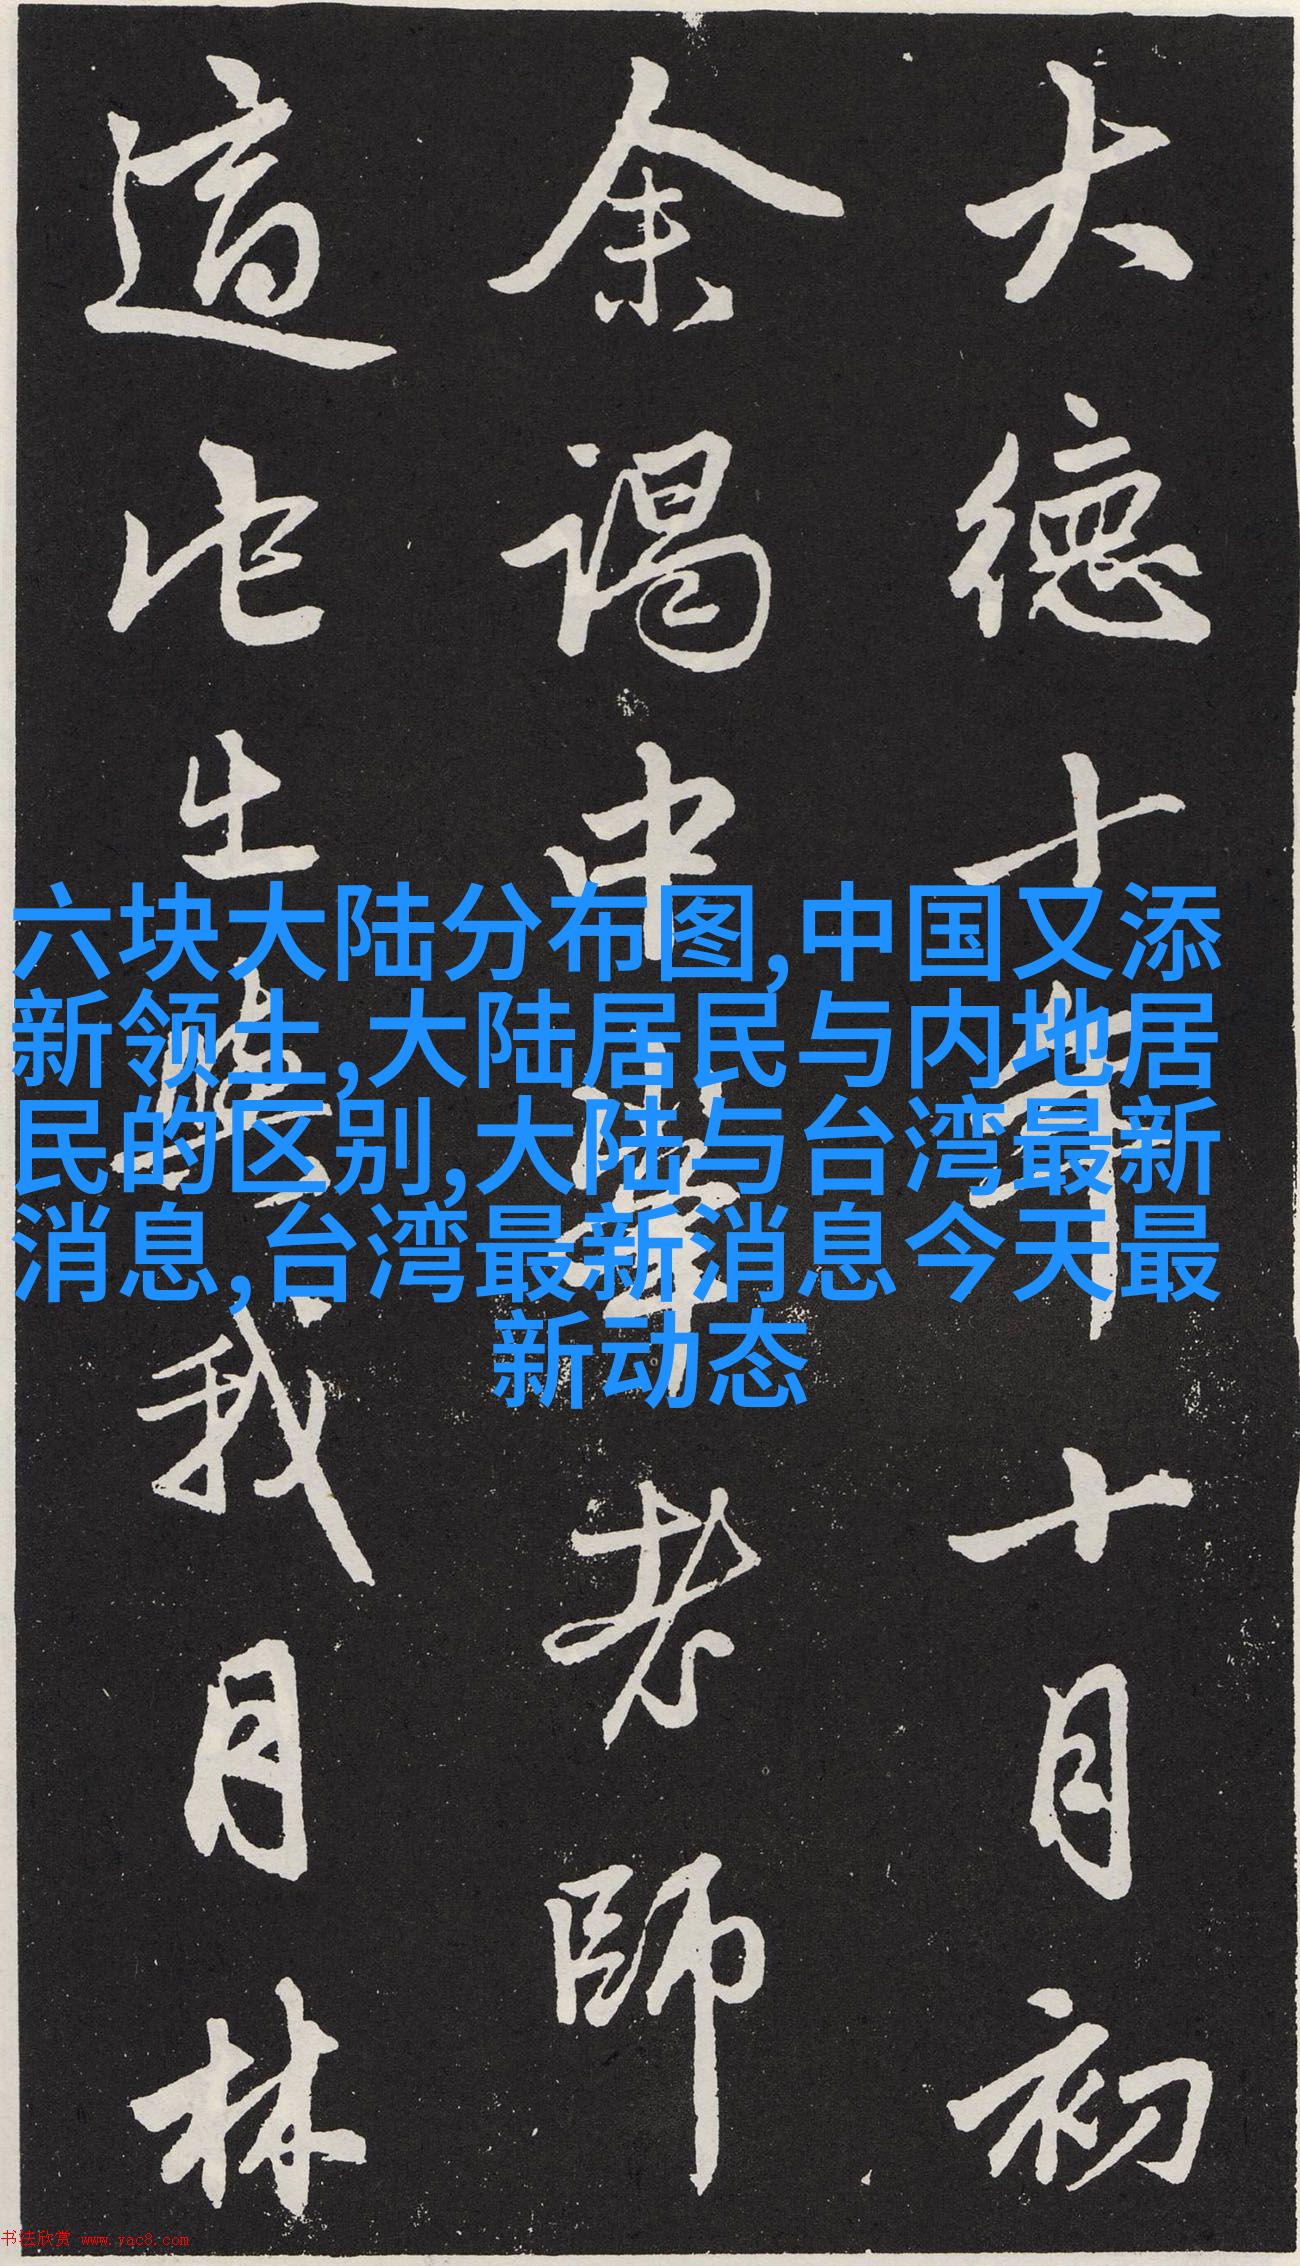 大德十年十月初
余謁中峯老師
適此我月林
六块大陆分布图,中国又添
新领土,大陆居民与内地居
民的区别,大陆与台湾最新
消息,台湾最新消息今天最
新动态
书法欣赏 www.yac8.com